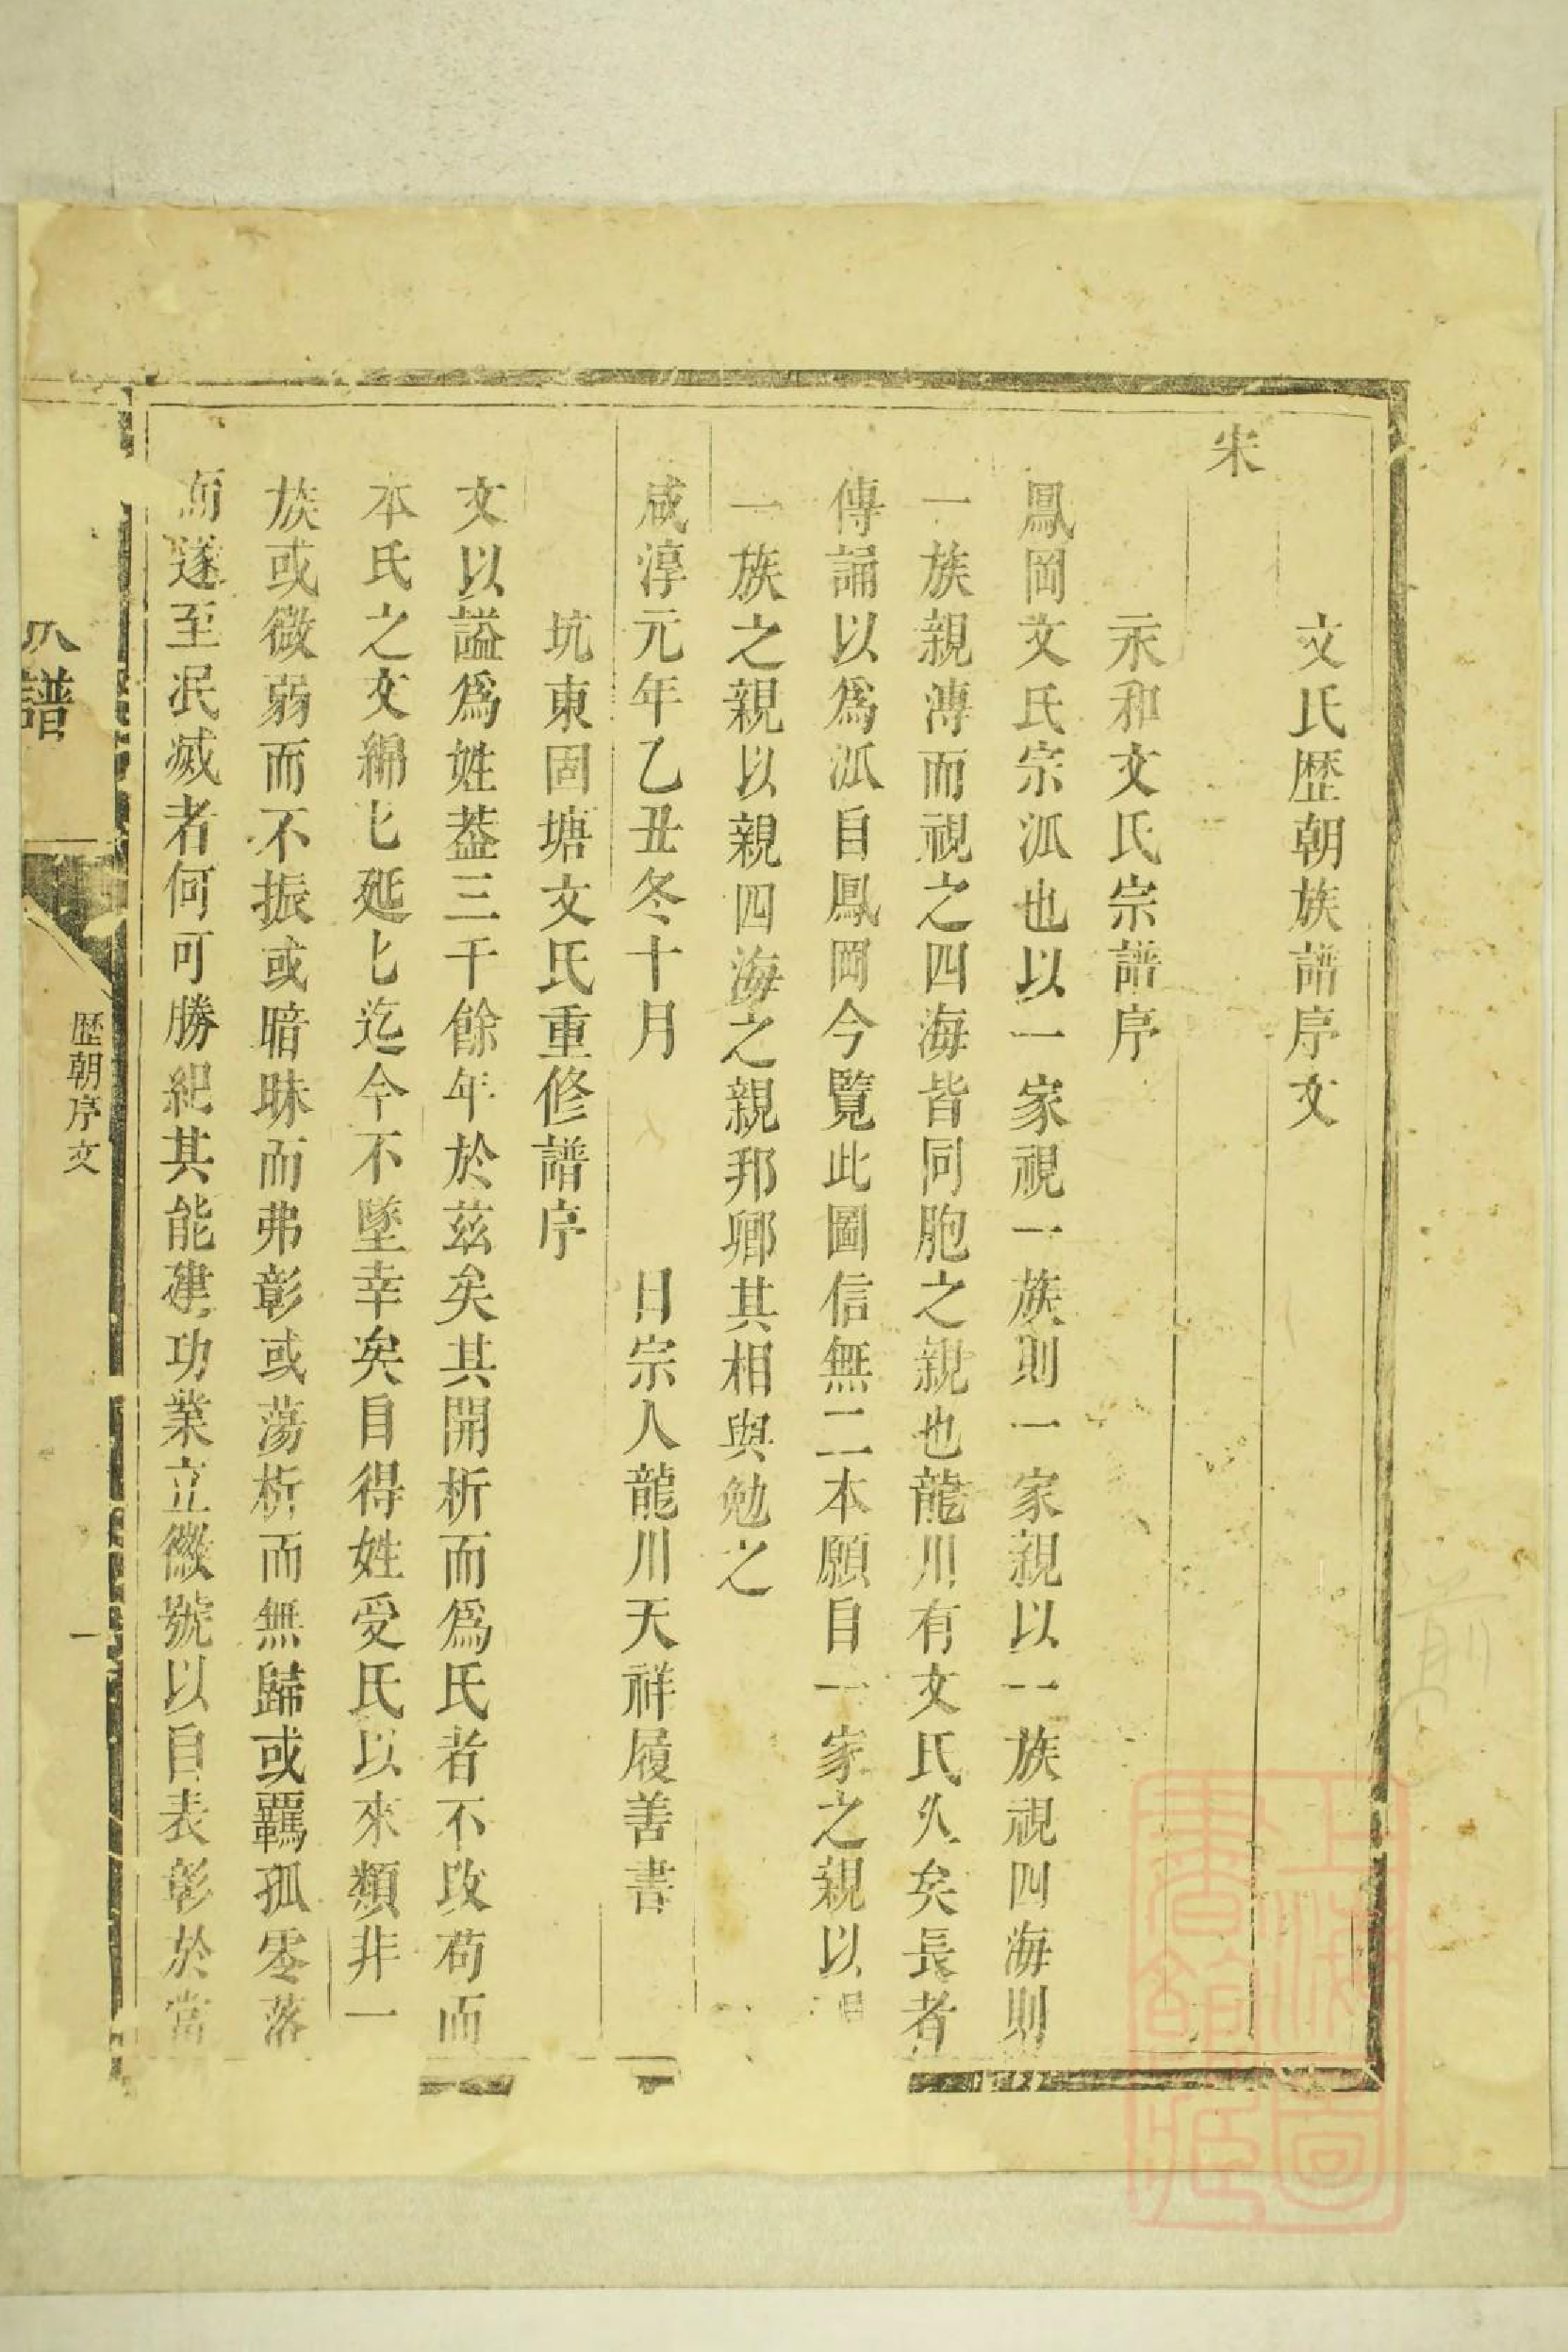 文氏歴朝族譜序文
宋
永和文氏宗譜序
鳳岡文氏宗派也以一家視一族則一家親以一族視四海則
一族親溥而視之四海皆同胞之親也龍川有文氏久矣長者
傳誦以爲派自鳳岡今覽此圖信無二本願自一家之親以
一族之親以親四海之親邦鄉其相與勉之
咸淳元年乙丑冬十月 日宗人龍川天祥履善書
坑東固塘文氏重修譜序
文以謚爲姓葢三千餘年於茲矣其開析而爲氏者不攺苟而
本氏之文綿匕延匕迄今不墜幸矣自得姓受氏以來類非一
族或微弱而不振或暗昧而弗彰或蕩析而無歸或羈孤零落
而遂至泯滅者何可勝紀其能建功業立徽號以自表彰於當
譜
歴朝序文
一
上海圖書館藏
前